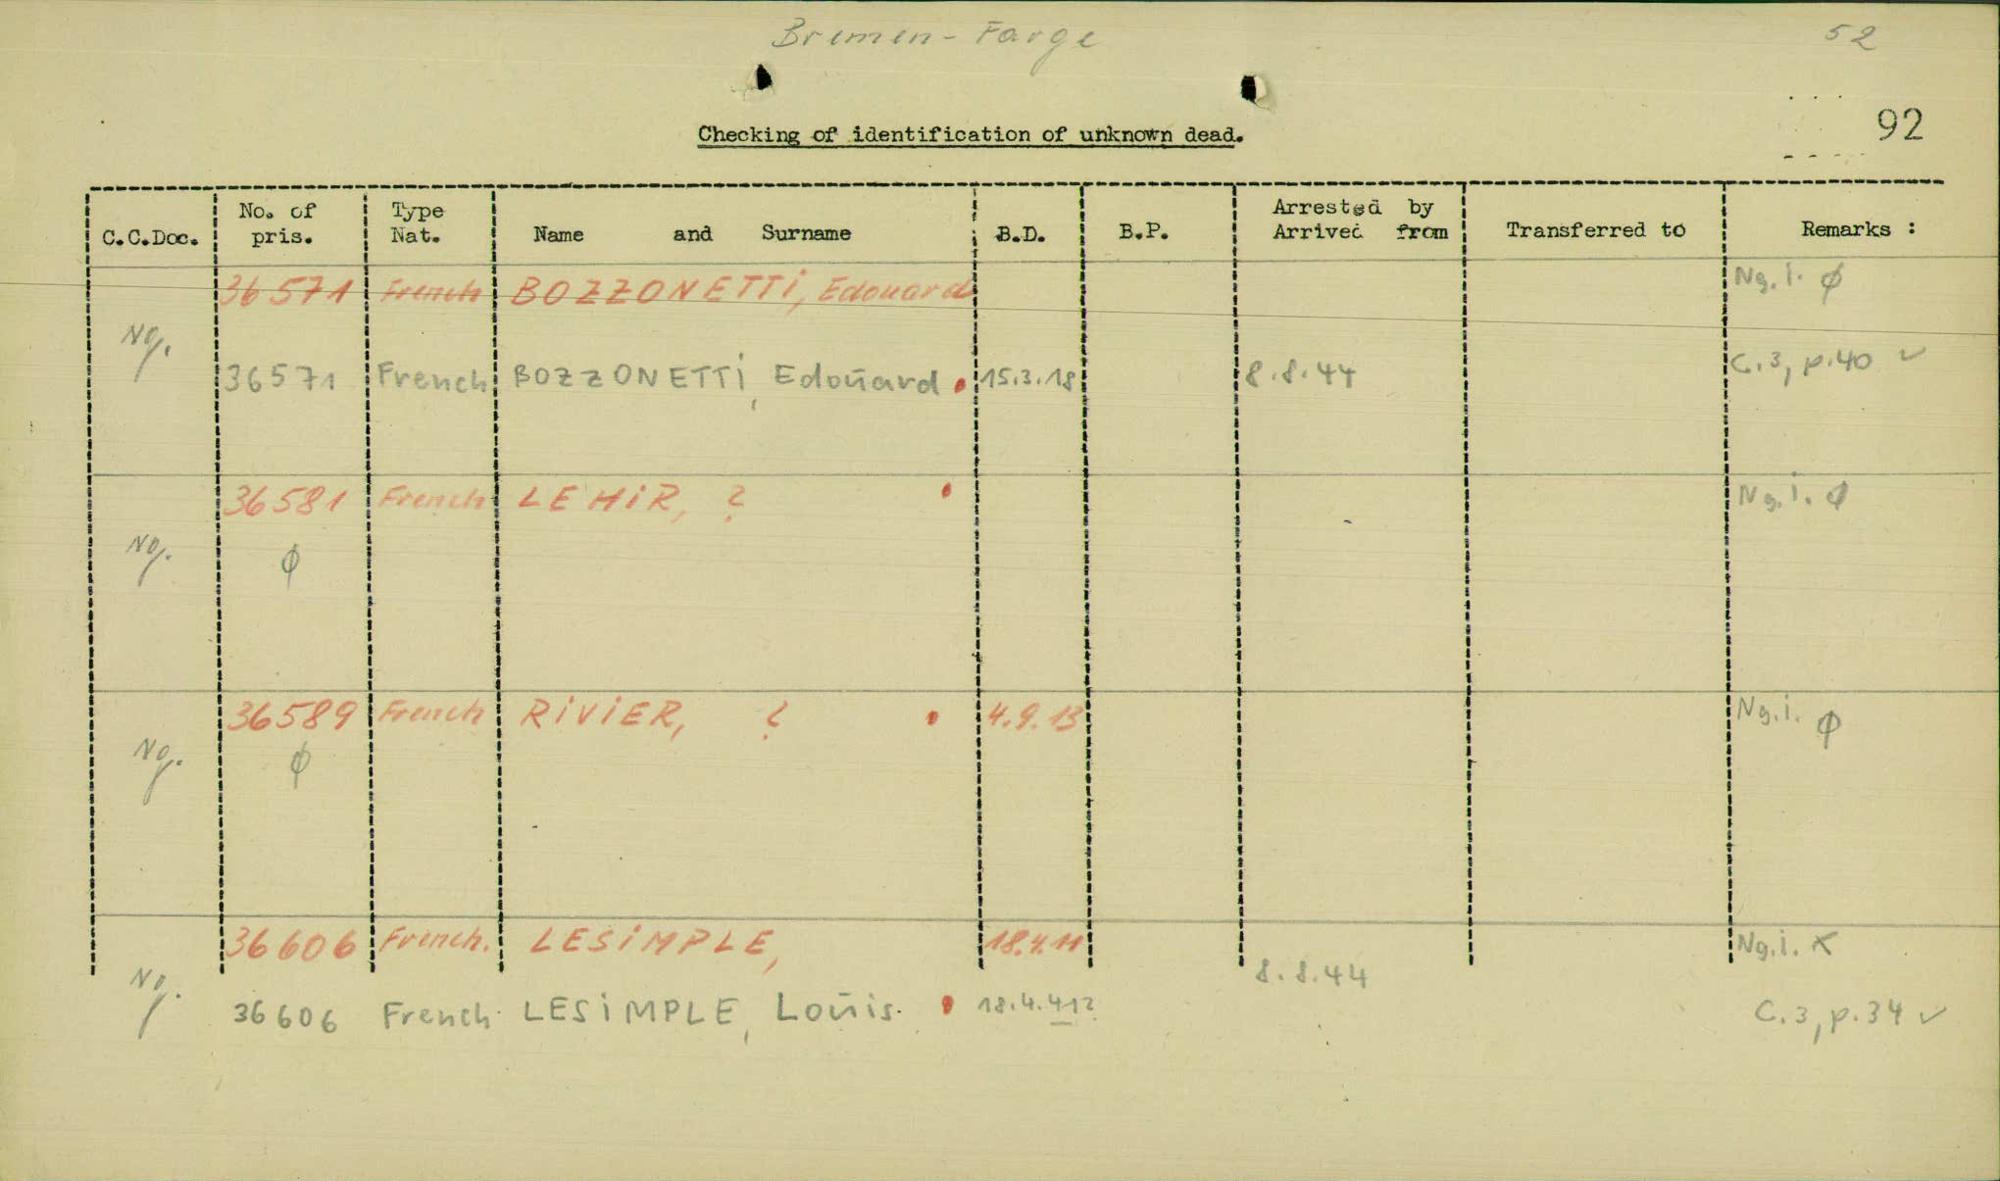 Bremen-Farge
52
92
Checking of identification of unknown dead.
C.C.Doc. No. of pris. Type Nat. Name and Surname B.D. B.P. Arrested by Arrived from Transferred to Remarks :
36571 French BOZZONETTI, Edouard Ng.i. φ
Ng. 36571 French BOZZONETTI, Edoūard 15.3.18 8.8.44 C.3, p.40 ✓
36581 French LEHIR, ? Ng.i. φ
Ng. φ
36589 French RIVIER, ? 4.9.13 Ng.i. φ
Ng. φ
36606 French. LESIMPLE, 18.4.11 Ng.i. X
8.8.44
Ng. 36606 French LESIMPLE, Loūis. C.3, p.34 ✓